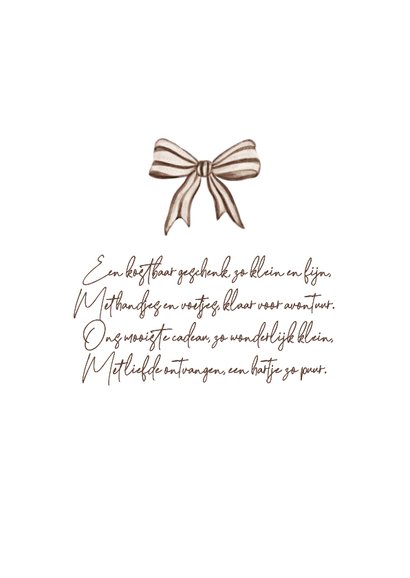 Een kostbaar geschenk, zo klein en fijn,
Met handjes en voetjes, klaar voor avontuur.
Ons mooiste cadeau, zo wonderlijk klein,
Met liefde ontvangen, een hartje zo puur.